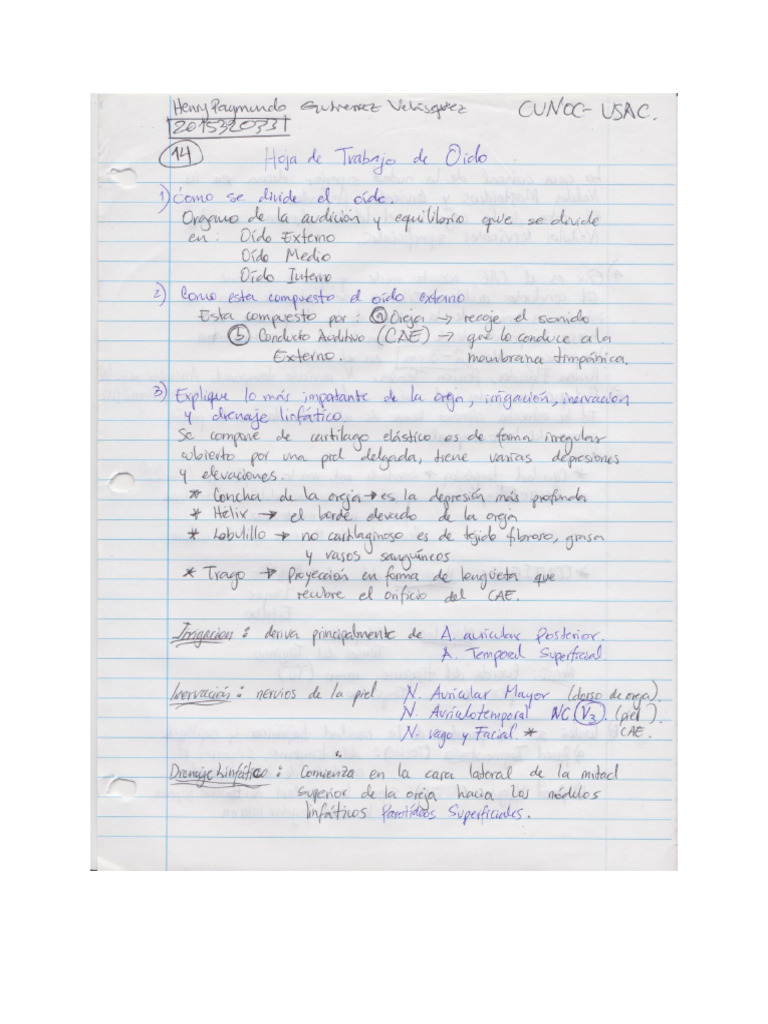 Henry Raymundo Gutierrez Velásquez CUNOC-USAC.
201532033
14 Hoja de Trabajo de Oido
1) Como se divide el oído.
Organo de la audición y equilibrio que se divide
en: Oído Externo
Oído Medio
Oído Interno
2) Como esta compuesto el oído externo
Esta compuesto por: a Oreja → recoje el sonido
b Conducto Auditivo (CAE) → que lo conduce a la
Externo. membrana timpánica.
3) Explique lo más importante de la oreja, irrigación, inervación
y drenaje linfático.
Se compone de cartilago elástico es de forma irregular
cubierto por una piel delgada, tiene varias depresiones
y elevaciones.
* Concha de la oreja → es la depresión más profunda
* Helix → el borde elevado de la oreja
* Lobulillo → no cartilaginoso es de tejido fibroso, grasa
y vasos sanguíneos
* Trago → Proyección en forma de lengüeta que
recubre el orificio del CAE.
Irrigacion: deriva principalmente de A. auricular Posterior.
A. Temporal Superficial.
Inervación: nervios de la piel N. Auricular Mayor (dorso de oreja).
N. Auriculotemporal NC (V3) (piel).
N. vago y Facial * CAE.
Drenaje Linfático: Comienza en la cara lateral de la mitad
superior de la oreja hacia los nódulos
linfáticos Parotídeos Superficiales.